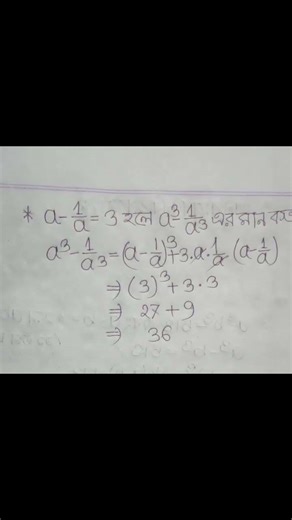 * a - 1/a = 3 হলে a³ - 1/a³ এর মান কত
a³ - 1/a³ = (a - 1/a)³ + 3·a·1/a (a - 1/a)
⇒ (3)³ + 3·3
⇒ 27 + 9
⇒ 36